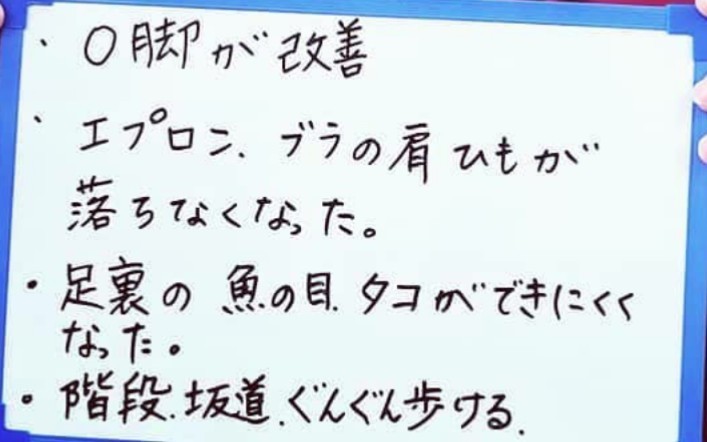 ・O脚が改善
・エプロン、ブラの肩ひもが
落ちなくなった。
・足裏の魚の目、タコができにくく
なった。
・階段、坂道、ぐんぐん歩ける。